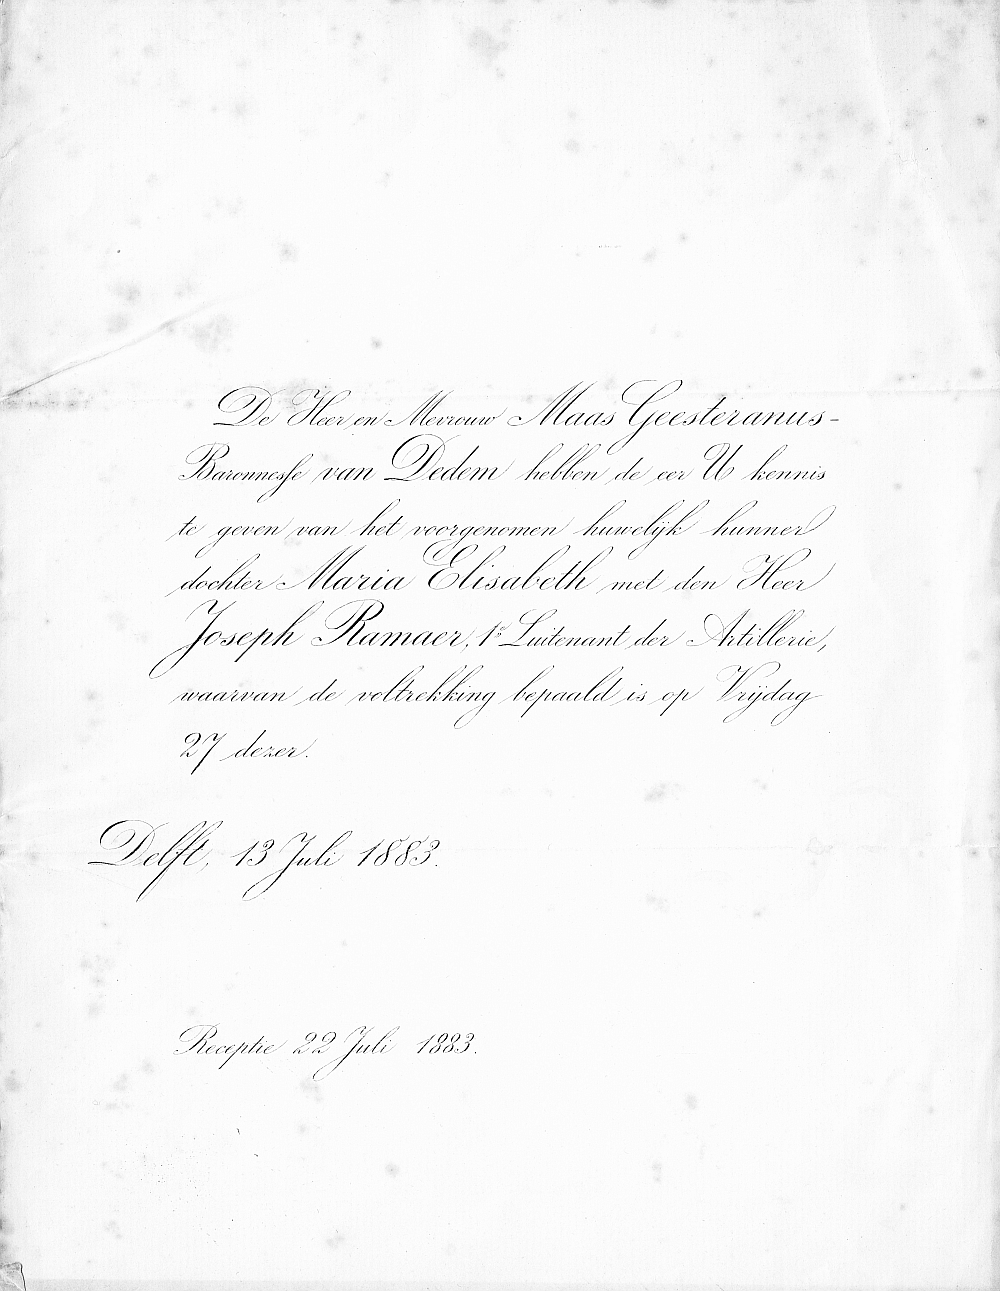 De Heer en Mevrouw Maas Geesteranus-
Baronnesse van Dedem hebben de eer U kennis
te geven van het voorgenomen huwelijk hunner
dochter Maria Elisabeth met den Heer
Joseph Ramaer, 1e Luitenant der Artillerie,
waarvan de voltrekking bepaald is op Vrijdag
27 dezer.
Delft, 13 Juli 1883.
Receptie 22 Juli 1883.